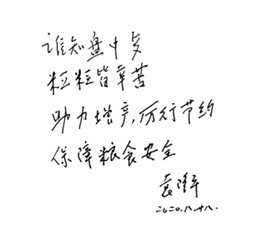 谁知盘中歺
粒粒皆辛苦
助力增产,厉行节约
保障粮食安全
袁隆平
2020.八.十八.